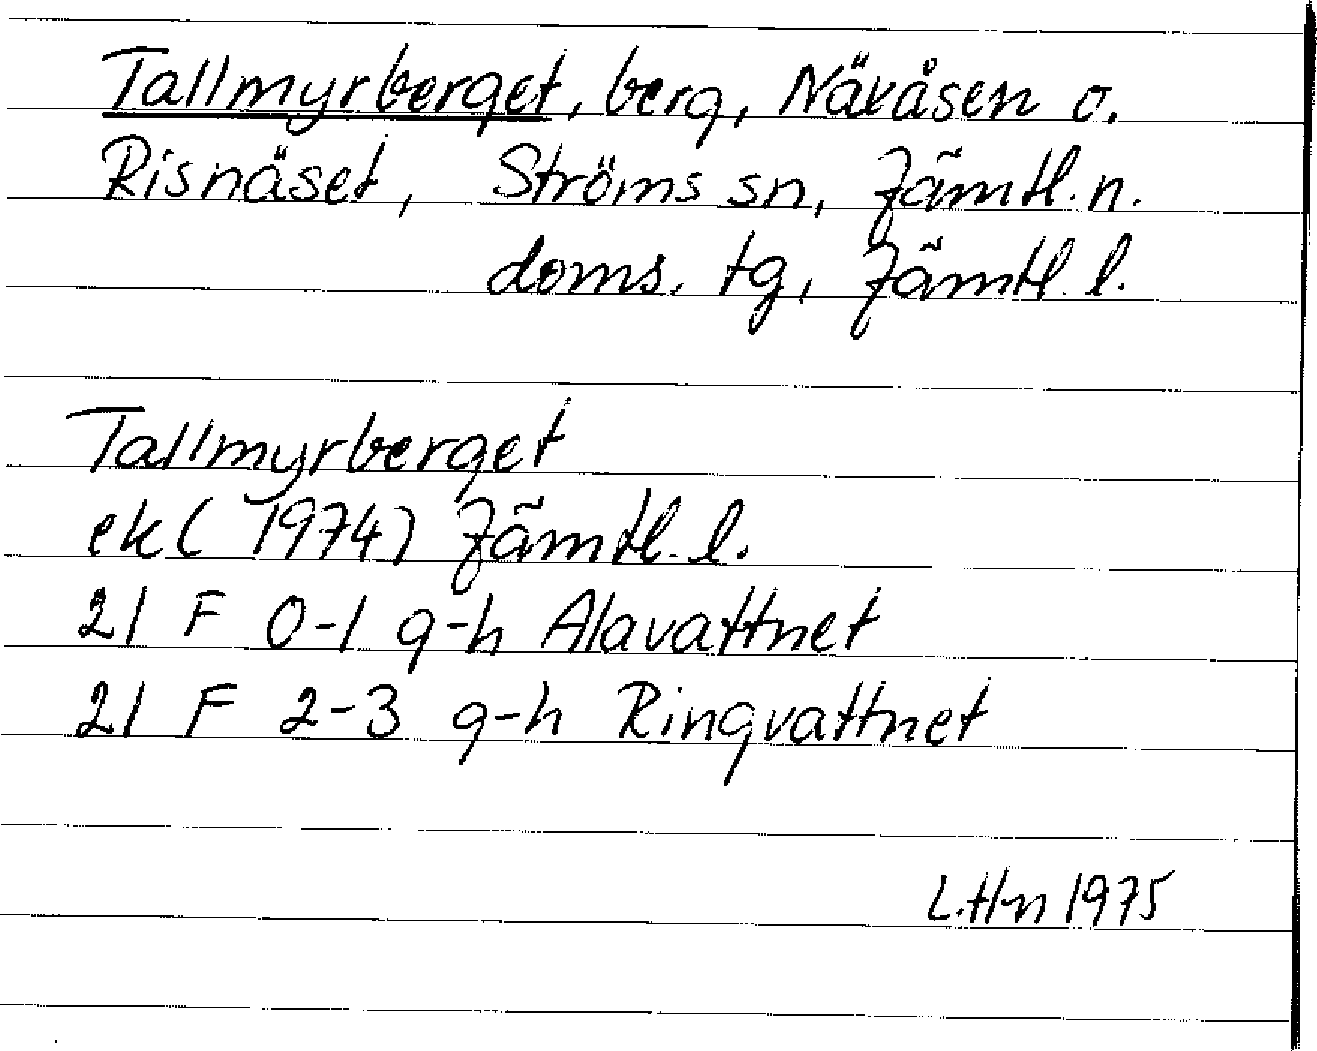 Tallmyrberget, berg, Näkåsen o.
Risnäset, Ströms sn, Jämtl. n.
doms. tg, Jämtl. l.
Tallmyrberget
ek (1974) Jämtl. l.
21 F 0-1 g-h Alavattnet
21 F 2-3 g-h Ringvattnet
L. Hn 1975